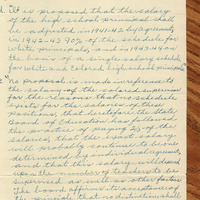 It is proposed that the salary
of the high school principal shall
be adjusted in 1941-42 by agreement
in 1942-43 90% of the schedule for
white principals, and in 1943-44 on
the basis of a single salary schedule
for white and colored high school principals
"No proposal is made in reference to
the salary of the colored supervisor
for the reason that no schedule
exists for the salaries of these
positions, that heretofore the State
Board of Education has followed
the practice of paying of the
salaries, that the exact salary
will probably continue to be
determined on individual agreement,
and that this salary will depend
upon the number of teachers to be
supervised as well as other factors
The board affirms its acceptance of
the principle that no distinction shall